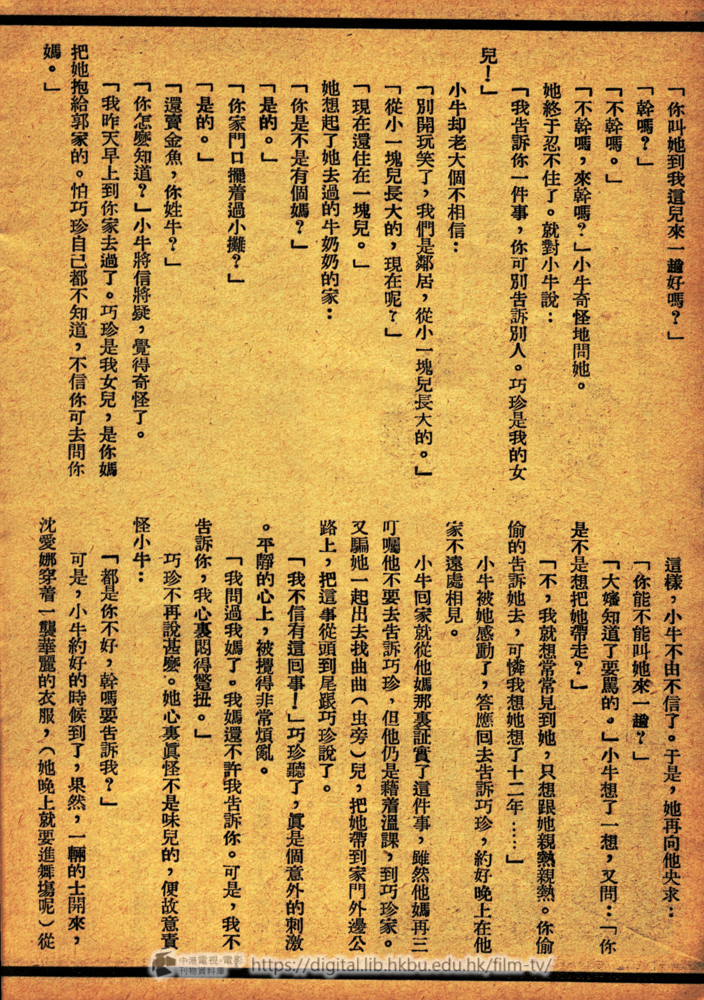 「你叫她到我這兒來一趟好嗎？」
「幹嗎？」
「不幹嗎。」
「不幹嗎，來幹嗎？」小牛奇怪地問她。
她終于忍不住了。就對小牛說：
「我告訴你一件事，你可別告訴別人。巧珍是我的女
兒！」
小牛却老大個不相信：
「別開玩笑了，我們是鄰居，從小一塊兒長大的。」
「從小一塊兒長大的，現在呢？」
「現在還住在一塊兒。」
她想起了她去過的牛奶奶的家：
「你是不是有個媽？」
「是的。」
「你家門口擺着過小攤？」
「是的。」
「還賣金魚，你姓牛？」
「你怎麽知道？」小牛將信將疑，覺得奇怪了。
「我昨天早上到你家去過了。巧珍是我女兒，是你媽
把她抱給郭家的。怕巧珍自己都不知道，不信你可去問你
媽。」
這樣，小牛不由不信了。于是，她再向他央求：
「你能不能叫她來一趟？」
「大嬸知道了要罵的。」小牛想了一想，又問：「你
是不是想把她帶走？」
「不，我就想常常見到她，只想跟她親熱親熱。你偷
偷的告訴她去，可憐我想她想了十二年……」
小牛被她感動了，答應回去告訴巧珍，約好晚上在他
家不遠處相見。
小牛回家就從他媽那裏証實了這件事，雖然他媽再三
叮囑他不要去告訴巧珍，但他仍是藉着溫課，到巧珍家。
又騙她一起出去找曲曲（虫旁）兒，把她帶到家門外邊公
路上，把這事從頭到尾跟巧珍說了。
「我不信有這回事！」巧珍聽了，眞是個意外的刺激
。平靜的心上，被攪得非常煩亂。
「我問過我媽了。我媽還不許我告訴你。可是，我不
告訴你，我心裏悶得蹩扭。」
巧珍不再說甚麽。她心裏眞怪不是味兒的，便故意責
怪小牛：
「都是你不好，幹嗎要告訴我？」
可是，小牛約好的時候到了，果然，一輛的士開來，
沈愛娜穿着一襲華麗的衣服，（她晚上就要進舞場呢）從
中港電視·電影
刊物資料庫
https://digital.lib.hkbu.edu.hk/film-tv/